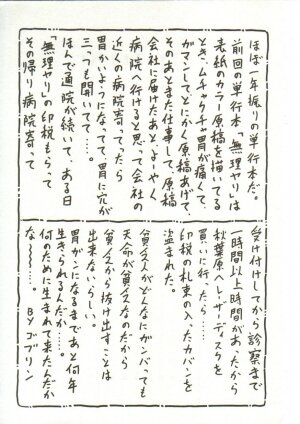 ほぼ一年振りの単行本だ。
前回の単行本「無理ヤリ」は
表紙のカラー原稿を描いてる
とき、ムチャクチャ胃が痛くて、
ガマンしてとにかく原稿あげて、
そのあとまた仕事して、原稿
会社に届けたあと、ようやく、
病院へ行けると思って会社の
近くの病院寄ってったら
胃がかいようになってて胃に穴が
三つも開いてて……。
ほんで通院が続いて、ある日
「無理ヤリ」の印税もらって
その帰り病院寄って
受け付けしてから診察まで
一時間以上時間があったから
秋葉原へレーザーディスクを
買いに行ったら……
印税の札束の入ったカバンを
盗まれた。
貧乏人がどんなにガンバっても
天命が貧乏なのだから
貧乏から抜け出すことは
出来ないらしい。
胃がんになるまであと何年
生きられるんだか……。
何のために生まれて来たんだか
な〜……。 BYゴブリン